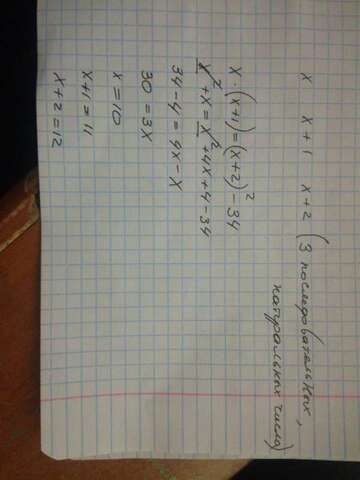 x x+1 x+2 (3 последовательных,
натуральных числа)
x·(x+1)=(x+2)²-34
x²+x=x²+4x+4-34
34-4=4x-x
30=3x
x=10
x+1=11
x+2=12